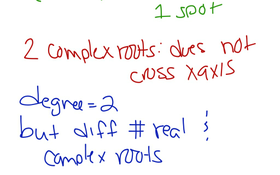 1 spot
2 complex roots: does not
cross xaxis
degree=2
but diff # real &
complex roots